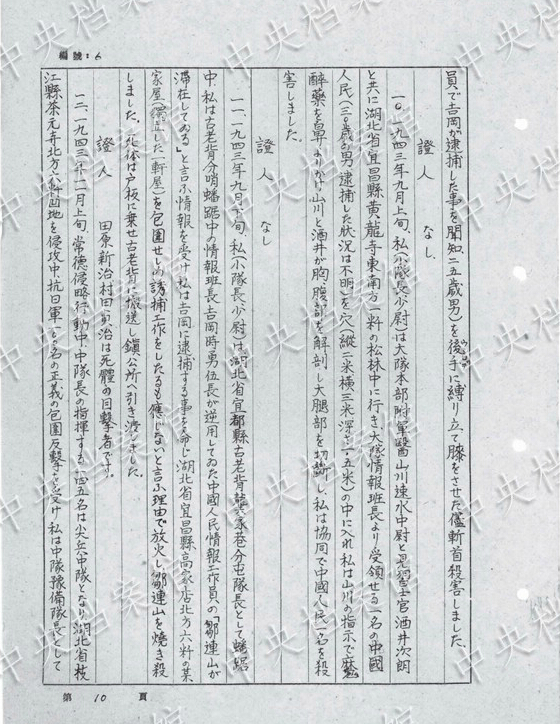 編號:6
員で吉岡が逮捕した事を聞知二五歳男)を後手に縛り立て膝をさせた儘斬首殺害しました、
證人 なし、
一〇、一九四三年九月上旬、私(小隊長少尉)は大隊本部附軍醫山川速水中尉と見習士官酒井次朗
と共に湖北省宜昌縣黄龍寺東南方一粁の松林中に行き、大隊情報班長より受領せる一名の中國
人民(三〇歳の男逮捕した状況は不明)を穴(縱二米横三米深さ一・五米)の中に入れ私は山川の指示で麻
醉藥を鼻よりかけ山川と酒井が胸、腹部を解剖し大腿部を切斷し、私は協同で中國人民一名を殺
害しました。
證人 なし
一一、一九四三年九月下旬、私(小隊長、少尉)は湖北省宜都縣古老背龔家巷分屯隊長として蟠踞
中、私は古老背分哨蟠踞中の情報班長吉岡時勇伍長が逆用してゐた中國人民情報工作員の「鄒連山が
滞在してゐる」と言ふ情報を受け私は吉岡に逮捕する事を命じ湖北省宜昌縣高家店北方六粁の某
家屋(獨立した一軒屋)を包圍せしめ誘捕工作をしたるも應じないと言ふ理由で放火し、鄒連山を焼き殺
しました、死体は戸板に乗せ古老背に搬送し鎭公所へ引き渡しました。
證人 田原新治村田貞治は死體の目撃者です。
一二、一九四三年一一月上旬、常德侵略行動中、中隊長の指揮する一四五名は尖兵中隊となり湖北省枝
江縣茶元寺北方六粁凹地を侵攻中、抗日軍一〇〇名の正義の包圍反撃を受け私は中隊豫備隊長として
第 10 頁
中央档案馆